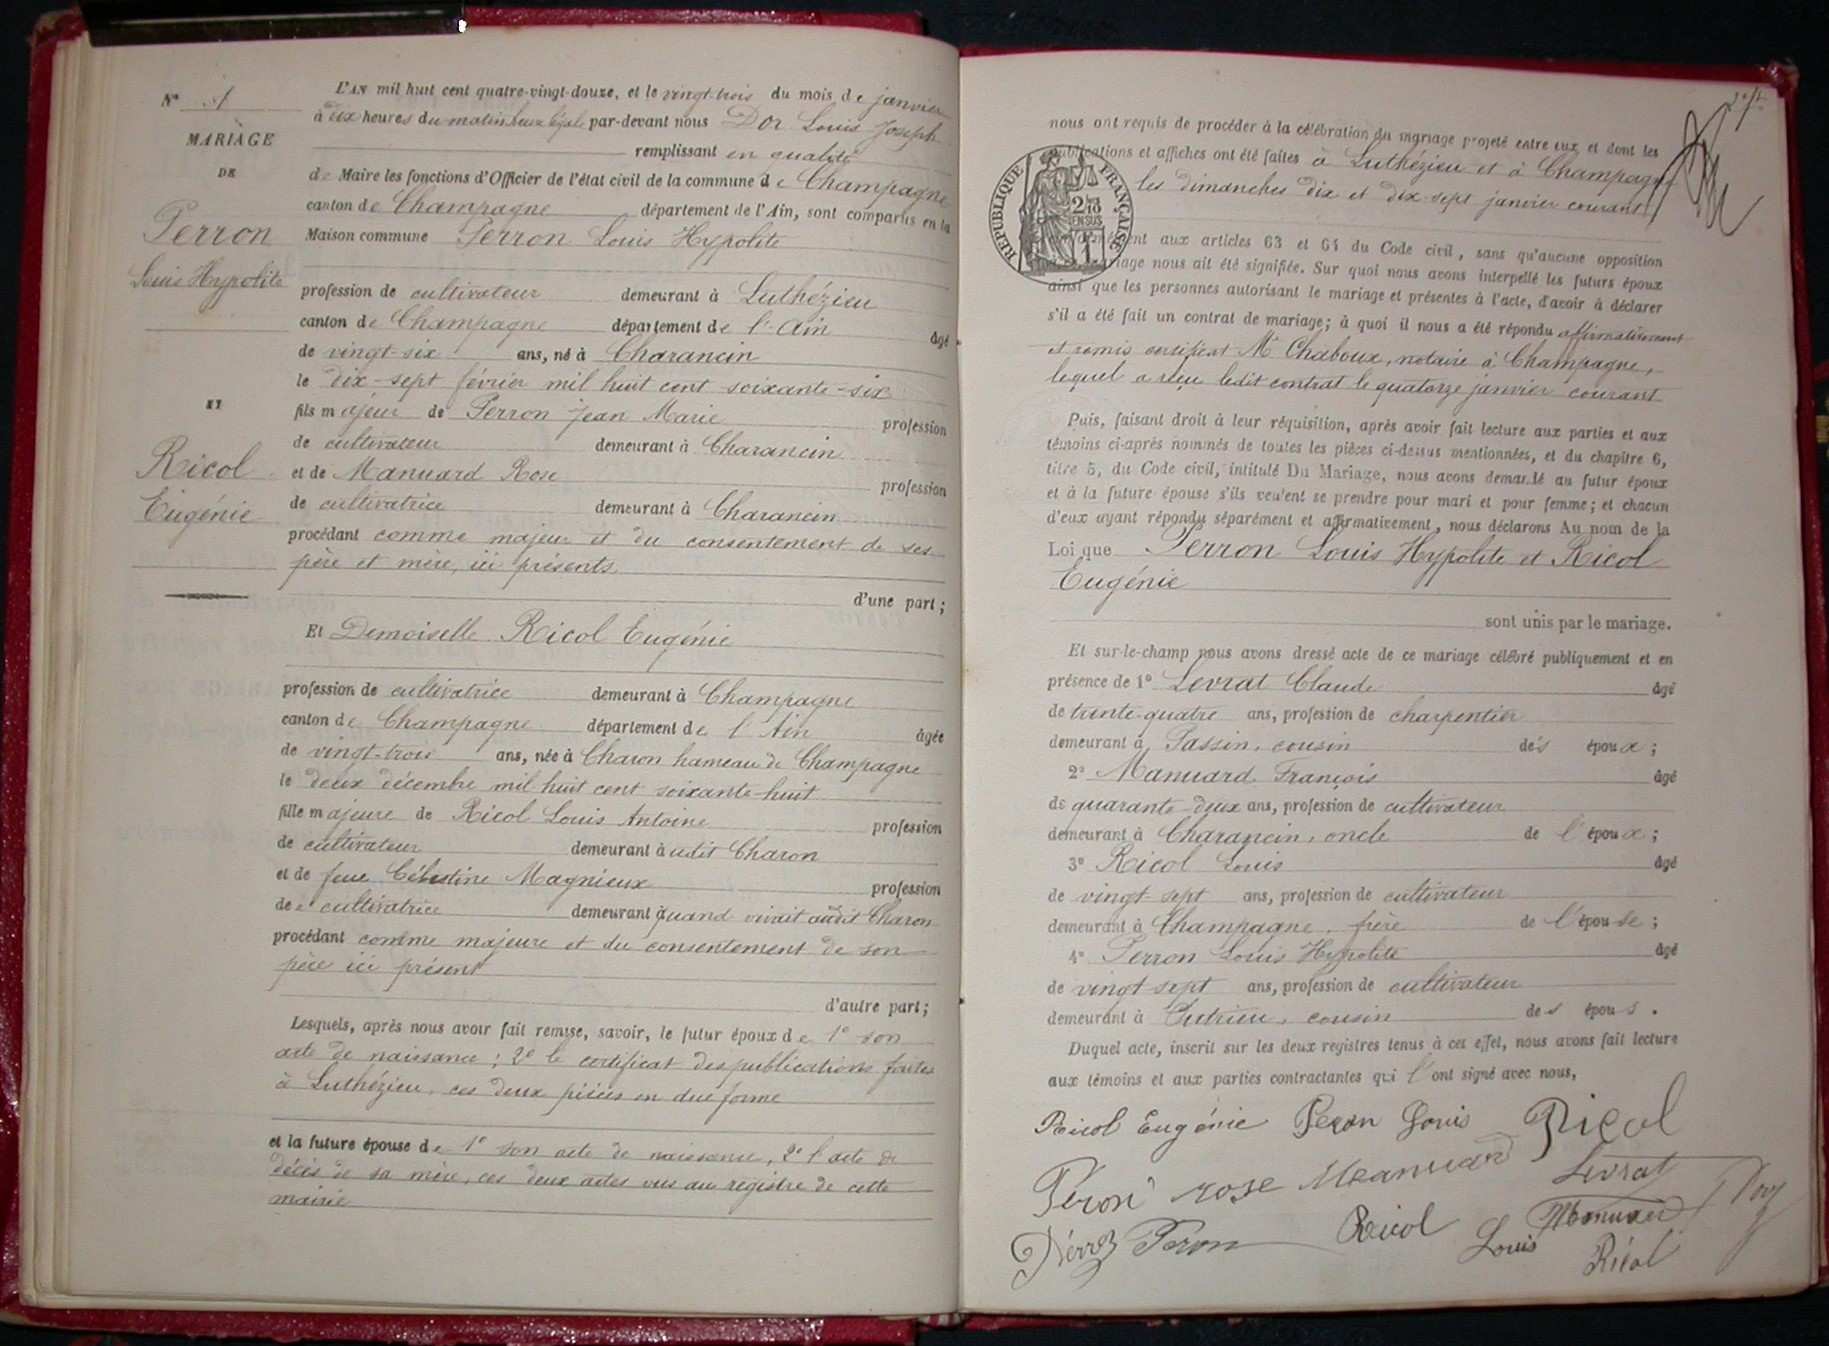 N° 1
MARIAGE
DE
Perron
Louis Hypolite
ET
Ricol
Eugénie
L'AN mil huit cent quatre-vingt-douze, et le vingt-trois du mois de janvier
à dix heures du matin heure légale par-devant nous Dor Louis Joseph
remplissant en qualité
de Maire les fonctions d'Officier de l'état civil de la commune de Champagne
canton de Champagne département de l'Ain, sont comparus en la
Maison commune Perron Louis Hypolite
profession de cultivateur demeurant à Luthézieu
canton de Champagne département de l'Ain âgé
de vingt-six ans, né à Charancin
le dix-sept février mil huit cent soixante-six
fils majeur de Perron Jean Marie profession
de cultivateur demeurant à Charancin
et de Manuard Rose profession
de cultivatrice demeurant à Charancin
procédant comme majeur et du consentement de ses
père et mère, ici présents
d'une part ;
Et Demoiselle Ricol Eugénie
profession de cultivatrice demeurant à Champagne
canton de Champagne département de l'Ain âgée
de vingt-trois ans, née à Charon hameau de Champagne
le deux décembre mil huit cent soixante-huit
fille majeure de Ricol Louis Antoine profession
de cultivateur demeurant à udit Charon
et de feue Célestine Magnieux profession
de cultivatrice demeurant quand vivait audit Charon
procédant comme majeure et du consentement de son
père ici présent
d'autre part ;
Lesquels, après nous avoir fait remise, savoir, le futur époux de 1° son
acte de naissance ; 2° le certificat des publications faites
à Luthézieu, ces deux pièces en due forme
et la future épouse de 1° son acte de naissance, 2° l'acte de
décès de sa mère, ces deux actes vus au registre de cette
mairie
nous ont requis de procéder à la célébration du mariage projeté entre eux et dont les
publications et affiches ont été faites à Luthézieu et à Champagne
les dimanches dix et dix-sept janvier courant
RÉPUBLIQUE FRANÇAISE
conformément aux articles 63 et 64 du Code civil, sans qu'aucune opposition
mariage nous ait été signifiée. Sur quoi nous avons interpellé les futurs époux
ainsi que les personnes autorisant le mariage et présentes à l'acte, d'avoir à déclarer
s'il a été fait un contrat de mariage ; à quoi il nous a été répondu affirmativement
et remis certificat Mr Chaboux, notaire à Champagne,
lequel a reçu ledit contrat le quatorze janvier courant
Puis, faisant droit à leur réquisition, après avoir fait lecture aux parties et aux
témoins ci-après nommés de toutes les pièces ci-dessus mentionnées, et du chapitre 6,
titre 5, du Code civil, intitulé Du Mariage, nous avons demandé au futur époux
et à la future épouse s'ils veulent se prendre pour mari et pour femme ; et chacun
d'eux ayant répondu séparément et affirmativement, nous déclarons Au nom de la
Loi que Perron Louis Hypolite et Ricol
Eugénie
sont unis par le mariage.
Et sur-le-champ nous avons dressé acte de ce mariage célébré publiquement et en
présence de 1° Levrat Claude âgé
de trente-quatre ans, profession de charpentier
demeurant à Passin, cousin des époux ;
2° Manuard François âgé
de quarante-deux ans, profession de cultivateur
demeurant à Charancin, oncle de l'époux ;
3° Ricol Louis âgé
de vingt sept ans, profession de cultivateur
demeurant à Champagne, frère de l'épouse ;
4° Perron Louis Hypolite âgé
de vingt sept ans, profession de cultivateur
demeurant à cousin des épous.
Duquel acte, inscrit sur les deux registres tenus à cet effet, nous avons fait lecture
aux témoins et aux parties contractantes qui l'ont signé avec nous,
Ricol Eugénie Peron Louis Ricol
Péron rose Manuard Levrat Dor
Peron Ricol Louis Manuard
Ricol